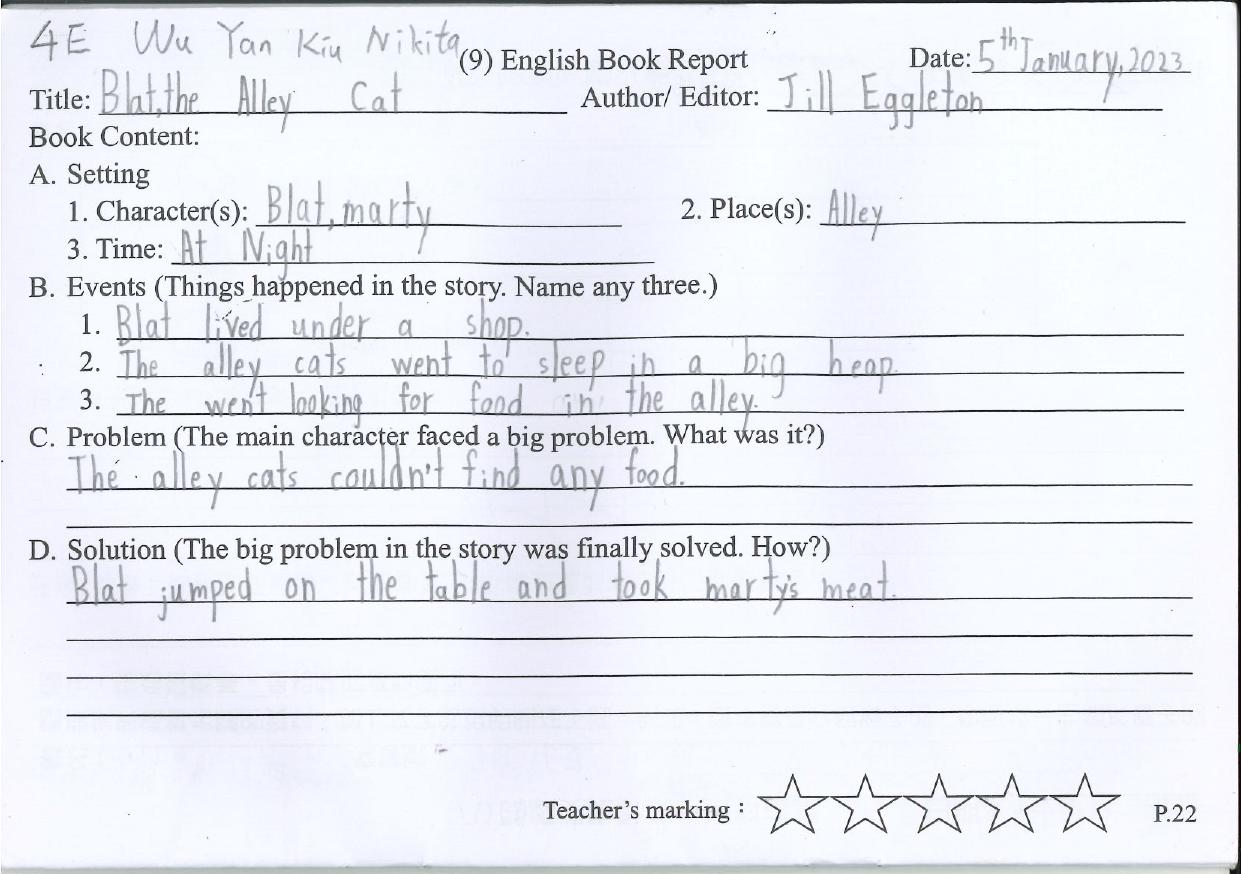 4E Wu Yan Kiu Nikita
(9) English Book Report Date: 5th January, 2023
Title: Blat, the Alley Cat Author/ Editor: Jill Eggleton
Book Content:
A. Setting
1. Character(s): Blat, marty 2. Place(s): Alley
3. Time: At Night
B. Events (Things happened in the story. Name any three.)
1. Blat lived under a shop.
2. The alley cats went to sleep in a big heap.
3. The went looking for food in the alley.
C. Problem (The main character faced a big problem. What was it?)
The alley cats couldn't find any food.
D. Solution (The big problem in the story was finally solved. How?)
Blat jumped on the table and took marty's meat.
Teacher's marking : P.22